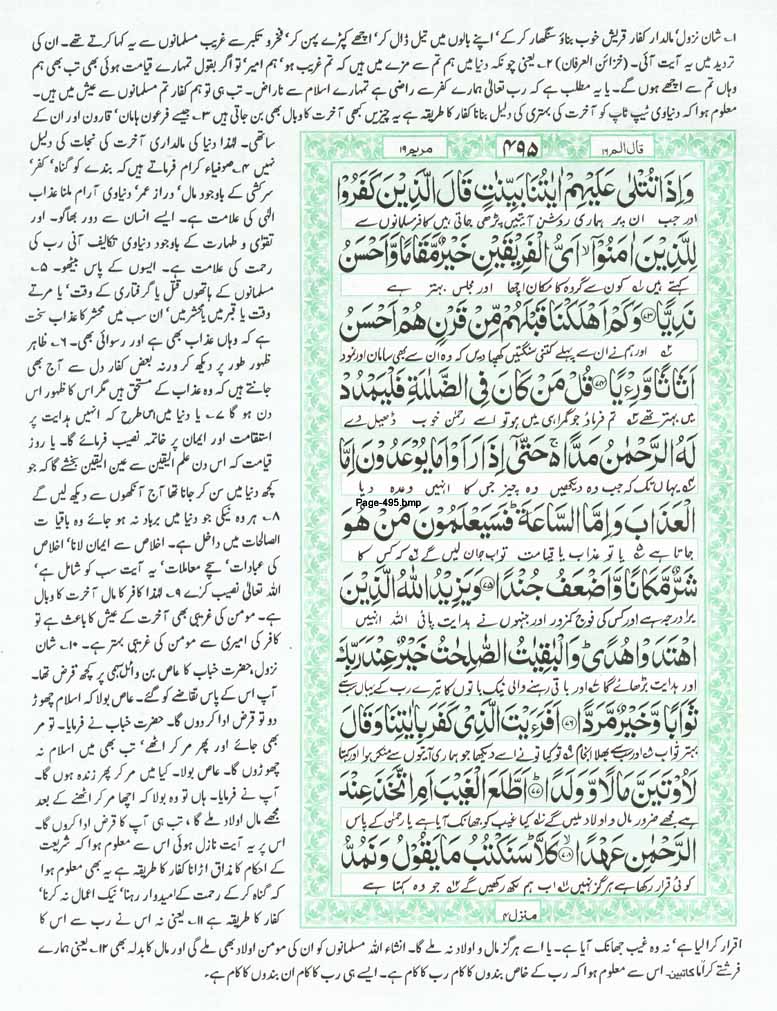 ۱؎ شان نزول‘ مالدار کفار قریش خوب بناؤ سنگھار کر کے‘ اپنے بالوں میں تیل ڈال کر‘ اچھے کپڑے پہن کر‘ فخر و تکبر سے غریب مسلمانوں سے یہ کہا کرتے تھے۔ ان کی
تردید میں یہ آیت آئی۔ (خزائن العرفان) ۲؎ یعنی چونکہ دنیا میں ہم تم سے مزے میں ہیں کہ تم غریب ہو‘ ہم امیر‘ تو اگر بقول تمہارے قیامت ہوئی بھی تب بھی ہم
وہاں تم سے اچھے ہوں گے۔ یا یہ مطلب ہے کہ رب تعالیٰ ہمارے کفر سے راضی ہے تمہارے اسلام سے ناراض۔ تب ہی تو ہم کفار تم مسلمانوں سے عیش میں ہیں۔
معلوم ہوا کہ دنیاوی ٹیپ ٹاپ کو آخرت کی بہتری کی دلیل بنانا کفار کا طریقہ ہے یہ چیزیں کبھی آخرت کا وبال بھی بن جاتی ہیں ۳؎ جیسے فرعون ہامان‘ قارون اور ان کے
ساتھی۔ لہٰذا دنیا کی مالداری آخرت کی نجات کی دلیل
نہیں ۴؎ صوفیاء کرام فرماتے ہیں کہ بندے کو گناہ‘ کفر‘
سرکشی کے باوجود مال‘ دراز عمر‘ دنیاوی آرام ملنا عذاب
الٰہی کی علامت ہے۔ ایسے انسان سے دور بھاگو۔ اور
تقویٰ و طہارت کے باوجود دنیاوی تکالیف آنی رب کی
رحمت کی علامت ہے۔ ایسوں کے پاس بیٹھو۔ ۵؎
مسلمانوں کے ہاتھوں قتل یا گرفتاری کے وقت‘ یا مرتے
وقت یا قبر میں یا محشر میں‘ ان سب میں محشر کا عذاب سخت
ہے کہ وہاں عذاب بھی ہے اور رسوائی بھی۔ ۶؎ ظاہر
ظہور طور پر دیکھ کر ورنہ بعض کفار دل سے آج بھی
جانتے ہیں کہ وہ عذاب کے مستحق ہیں مگر اس کا ظہور اس
دن ہو گا ۷؎ یا دنیا میں اس طرح کہ انہیں ہدایت پر
استقامت اور ایمان پر خاتمہ نصیب فرمائے گا۔ یا روز
قیامت کہ اس دن علم الیقین سے عین الیقین بخشے گا کہ جو
کچھ دنیا میں سن کر جانا تھا آج آنکھوں سے دیکھ لیں گے
۸؎ ہر وہ نیکی جو دنیا میں برباد نہ ہو جائے وہ باقیات
الصالحات میں داخل ہے۔ اخلاص سے ایمان لانا‘ اخلاص
کی عبادات‘ سچے معاملات‘ یہ آیت سب کو شامل ہے‘
اللہ تعالیٰ نصیب کرے ۹؎ لہٰذا کافر کا مال آخرت کا وبال
ہے۔ مومن کی غریبی بھی آخرت کے عیش کا باعث ہے تو
کافر کی امیری سے مومن کی غریبی بہتر ہے۔ ۱۰؎ شان
نزول‘ حضرت خباب کا عاص بن وائل سہمی پر کچھ قرض تھا۔
آپ اس کے پاس تقاضے کو گئے۔ عاص بولا کہ اسلام چھوڑ
دو تو قرض ادا کر دوں گا۔ حضرت خباب نے فرمایا۔ تو مر
بھی جائے اور پھر مر کر اٹھے‘ تب بھی میں اسلام نہ
چھوڑوں گا۔ عاص بولا۔ کیا میں مر کر پھر زندہ ہوں گا۔
آپ نے فرمایا۔ ہاں تو وہ بولا کہ اچھا مر کر اٹھنے کے بعد
مجھے مال اولاد ملے گا‘ تب ہی آپ کا قرض ادا کروں گا۔
اس پر یہ آیت نازل ہوئی اس سے معلوم ہوا کہ شریعت
کے احکام کا مذاق اڑانا کفار کا طریقہ ہے یہ بھی معلوم ہوا
کہ گناہ کر کے رحمت کے امیدوار رہنا‘ نیک اعمال نہ کرنا‘
کفار کا طریقہ ہے ۱۱؎ یعنی نہ اس نے رب سے اس کا
قال الم ۱۶
۴۹۵
مریم ۱۹
وَاِذَا تُتْلٰى عَلَيْهِمْ اٰيٰتُنَا بَيِّنٰتٍ قَالَ الَّذِيْنَ كَفَرُوْا
اور جب ان پر ہماری روشن آیتیں پڑھی جاتی ہیں کافر مسلمانوں سے
لِلَّذِيْنَ اٰمَنُوْۤا اَىُّ الْفَرِيْقَيْنِ خَيْرٌ مَّقَامًا وَّاَحْسَنُ
کہتے ہیں کون سے گروہ کا مکان اچھا اور مجلس بہتر ہے
نَدِيًّا ﴿۷۳﴾ وَكَمْ اَهْلَكْنَا قَبْلَهُمْ مِّنْ قَرْنٍ هُمْ اَحْسَنُ
اور ہم نے ان سے پہلے کتنی سنگتیں کھپا دیں کہ وہ ان سے بھی سامان اور نمود
اَثَاثًا وَّرِءْيًا ﴿۷۴﴾ قُلْ مَنْ كَانَ فِى الضَّلٰلَةِ فَلْيَمْدُدْ
میں بہتر تھے تم فرماؤ جو گمراہی میں ہو تو اسے رحمٰن خوب ڈھیل دے
لَهُ الرَّحْمٰنُ مَدًّا حَتّٰۤى اِذَا رَاَوْا مَا يُوْعَدُوْنَ اِمَّا
یہاں تک کہ جب وہ دیکھیں وہ چیز جس کا انہیں وعدہ دیا
Page-495.bmp
الْعَذَابَ وَاِمَّا السَّاعَةَ فَسَيَعْلَمُوْنَ مَنْ هُوَ
جاتا ہے یا تو عذاب یا قیامت تو اب جان لیں گے کہ کس کا
شَرٌّ مَّكَانًا وَّاَضْعَفُ جُنْدًا ﴿۷۵﴾ وَيَزِيْدُ اللّٰهُ الَّذِيْنَ
برا درجہ ہے اور کس کی فوج کمزور اور جنہوں نے ہدایت پائی اللہ انہیں
اهْتَدَوْا هُدًى وَالْبٰقِيٰتُ الصّٰلِحٰتُ خَيْرٌ عِنْدَ رَبِّكَ
اور ہدایت بڑھائے گا اور باقی رہنے والی نیک باتوں کا تیرے رب کے یہاں سے
ثَوَابًا وَّخَيْرٌ مَّرَدًّا ﴿۷۶﴾ اَفَرَءَيْتَ الَّذِىْ كَفَرَ بِاٰيٰتِنَا وَقَالَ
بہتر ثواب اور سب سے بھلا انجام تو کیا تم نے اسے دیکھا جو ہماری آیتوں سے منکر ہوا اور کہتا
لَاُوْتَيَنَّ مَالًا وَّوَلَدًا ﴿۷۷﴾ اَطَّلَعَ الْغَيْبَ اَمِ اتَّخَذَ عِنْدَ
ہے مجھے ضرور مال و اولاد ملیں گے کیا غیب کو جھانک آیا ہے یا رحمٰن کے پاس
الرَّحْمٰنِ عَهْدًا ﴿۷۸﴾ كَلَّا سَنَكْتُبُ مَا يَقُوْلُ وَنَمُدُّ
کوئی قرار رکھا ہے ہرگز نہیں اب ہم لکھ رکھیں گے جو وہ کہتا ہے
منزل ۴
اقرار کرا لیا ہے‘ نہ وہ غیب جھانک آیا ہے۔ یا اسے ہرگز مال و اولاد نہ ملے گا۔ انشاء اللہ مسلمانوں کو ان کی مومن اولاد بھی ملے گی اور مال کا بدلہ بھی ۱۲؎ یعنی ہمارے
فرشتے کراماً کاتبین۔ اس سے معلوم ہوا کہ رب کے خاص بندوں کا کام رب کا کام ہے۔ ایسے ہی رب کا کام ان بندوں کا کام ہے۔